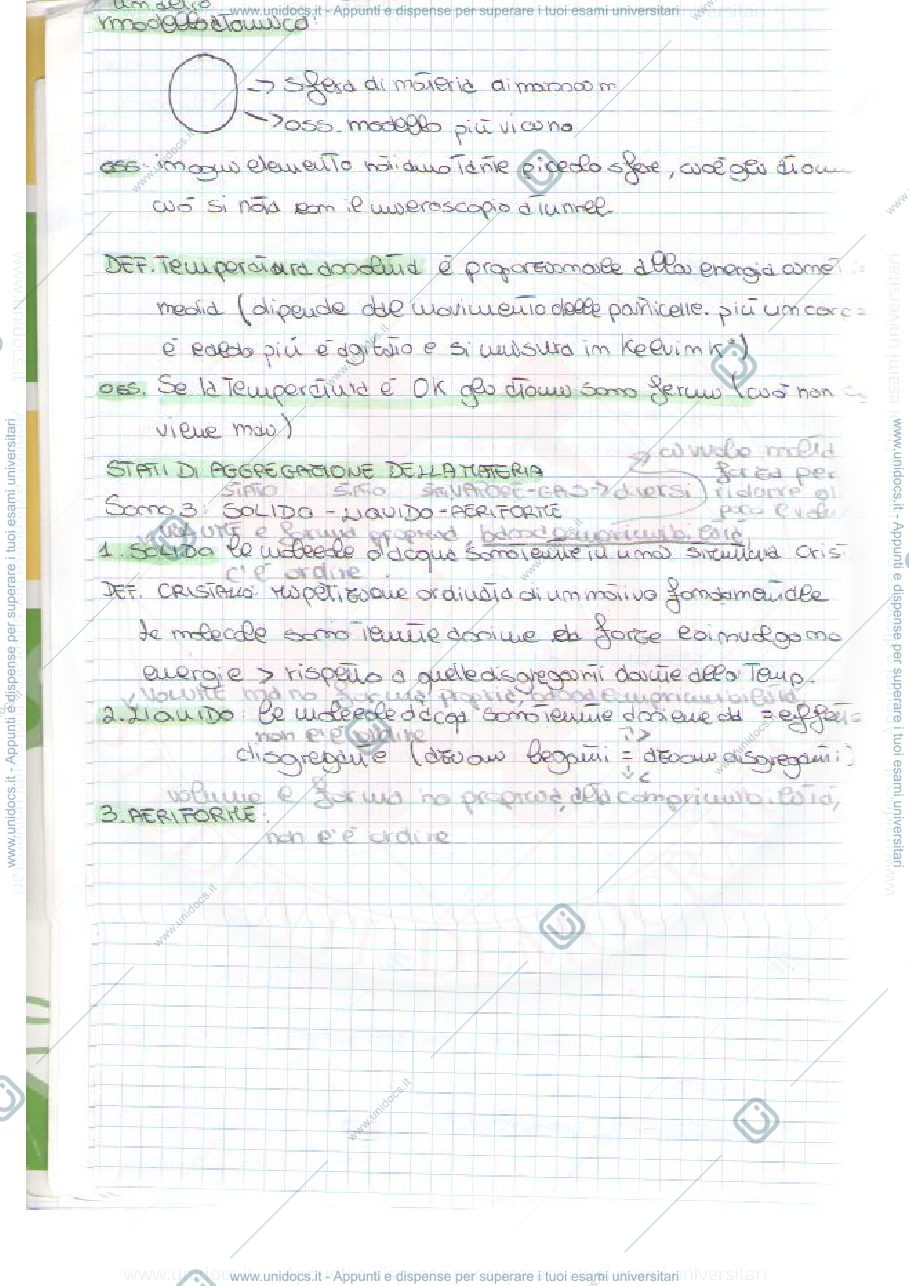 www.unidocs.it - Appunti e dispense per superare i tuoi esami universitari
modello atomico:
→ sfera di materia
→ oss. modello più vicino
oss: in ogni elemento notiamo tante piccole sfere, cioè gli atomi
ciò si nota con il microscopio a tunnel
DEF. Temperatura assoluta è proporzionale alla energia cinetica
media (dipende dal movimento delle particelle. più un corpo
è caldo più è agitato e si misura in Kelvin K°)
oss. Se la temperatura è 0K gli atomi sono fermi (ciò non
viene mai)
STATI DI AGGREGAZIONE DELLA MATERIA
→ ci vuole molta
forza per
ridurre
stato stato vapore-gas → diversi
Sono 3: SOLIDO - LIQUIDO - AERIFORME
volume e forma propria bassa comprimibilità
1. SOLIDO le molecole d'acqua sono tenute in una struttura cris
c'è ordine
DEF. CRISTALLO: ripetizione ordinata di un motivo fondamentale
Le molecole sono tenute assieme da forze coinvolgono
energie > rispetto a quelle disgreganti dovute alla Temp.
volume ma no forma propria, bassa comprimibilità
2. LIQUIDO: le molecole d'acqua sono tenute assieme da = effetti
non c'è ordine
disgregante (azioni leganti = azioni disgreganti)
volume e forma no propria, alta comprimibilità,
3. AERIFORME:
non c'è ordine
www.unidocs.it - Appunti e dispense per superare i tuoi esami universitari